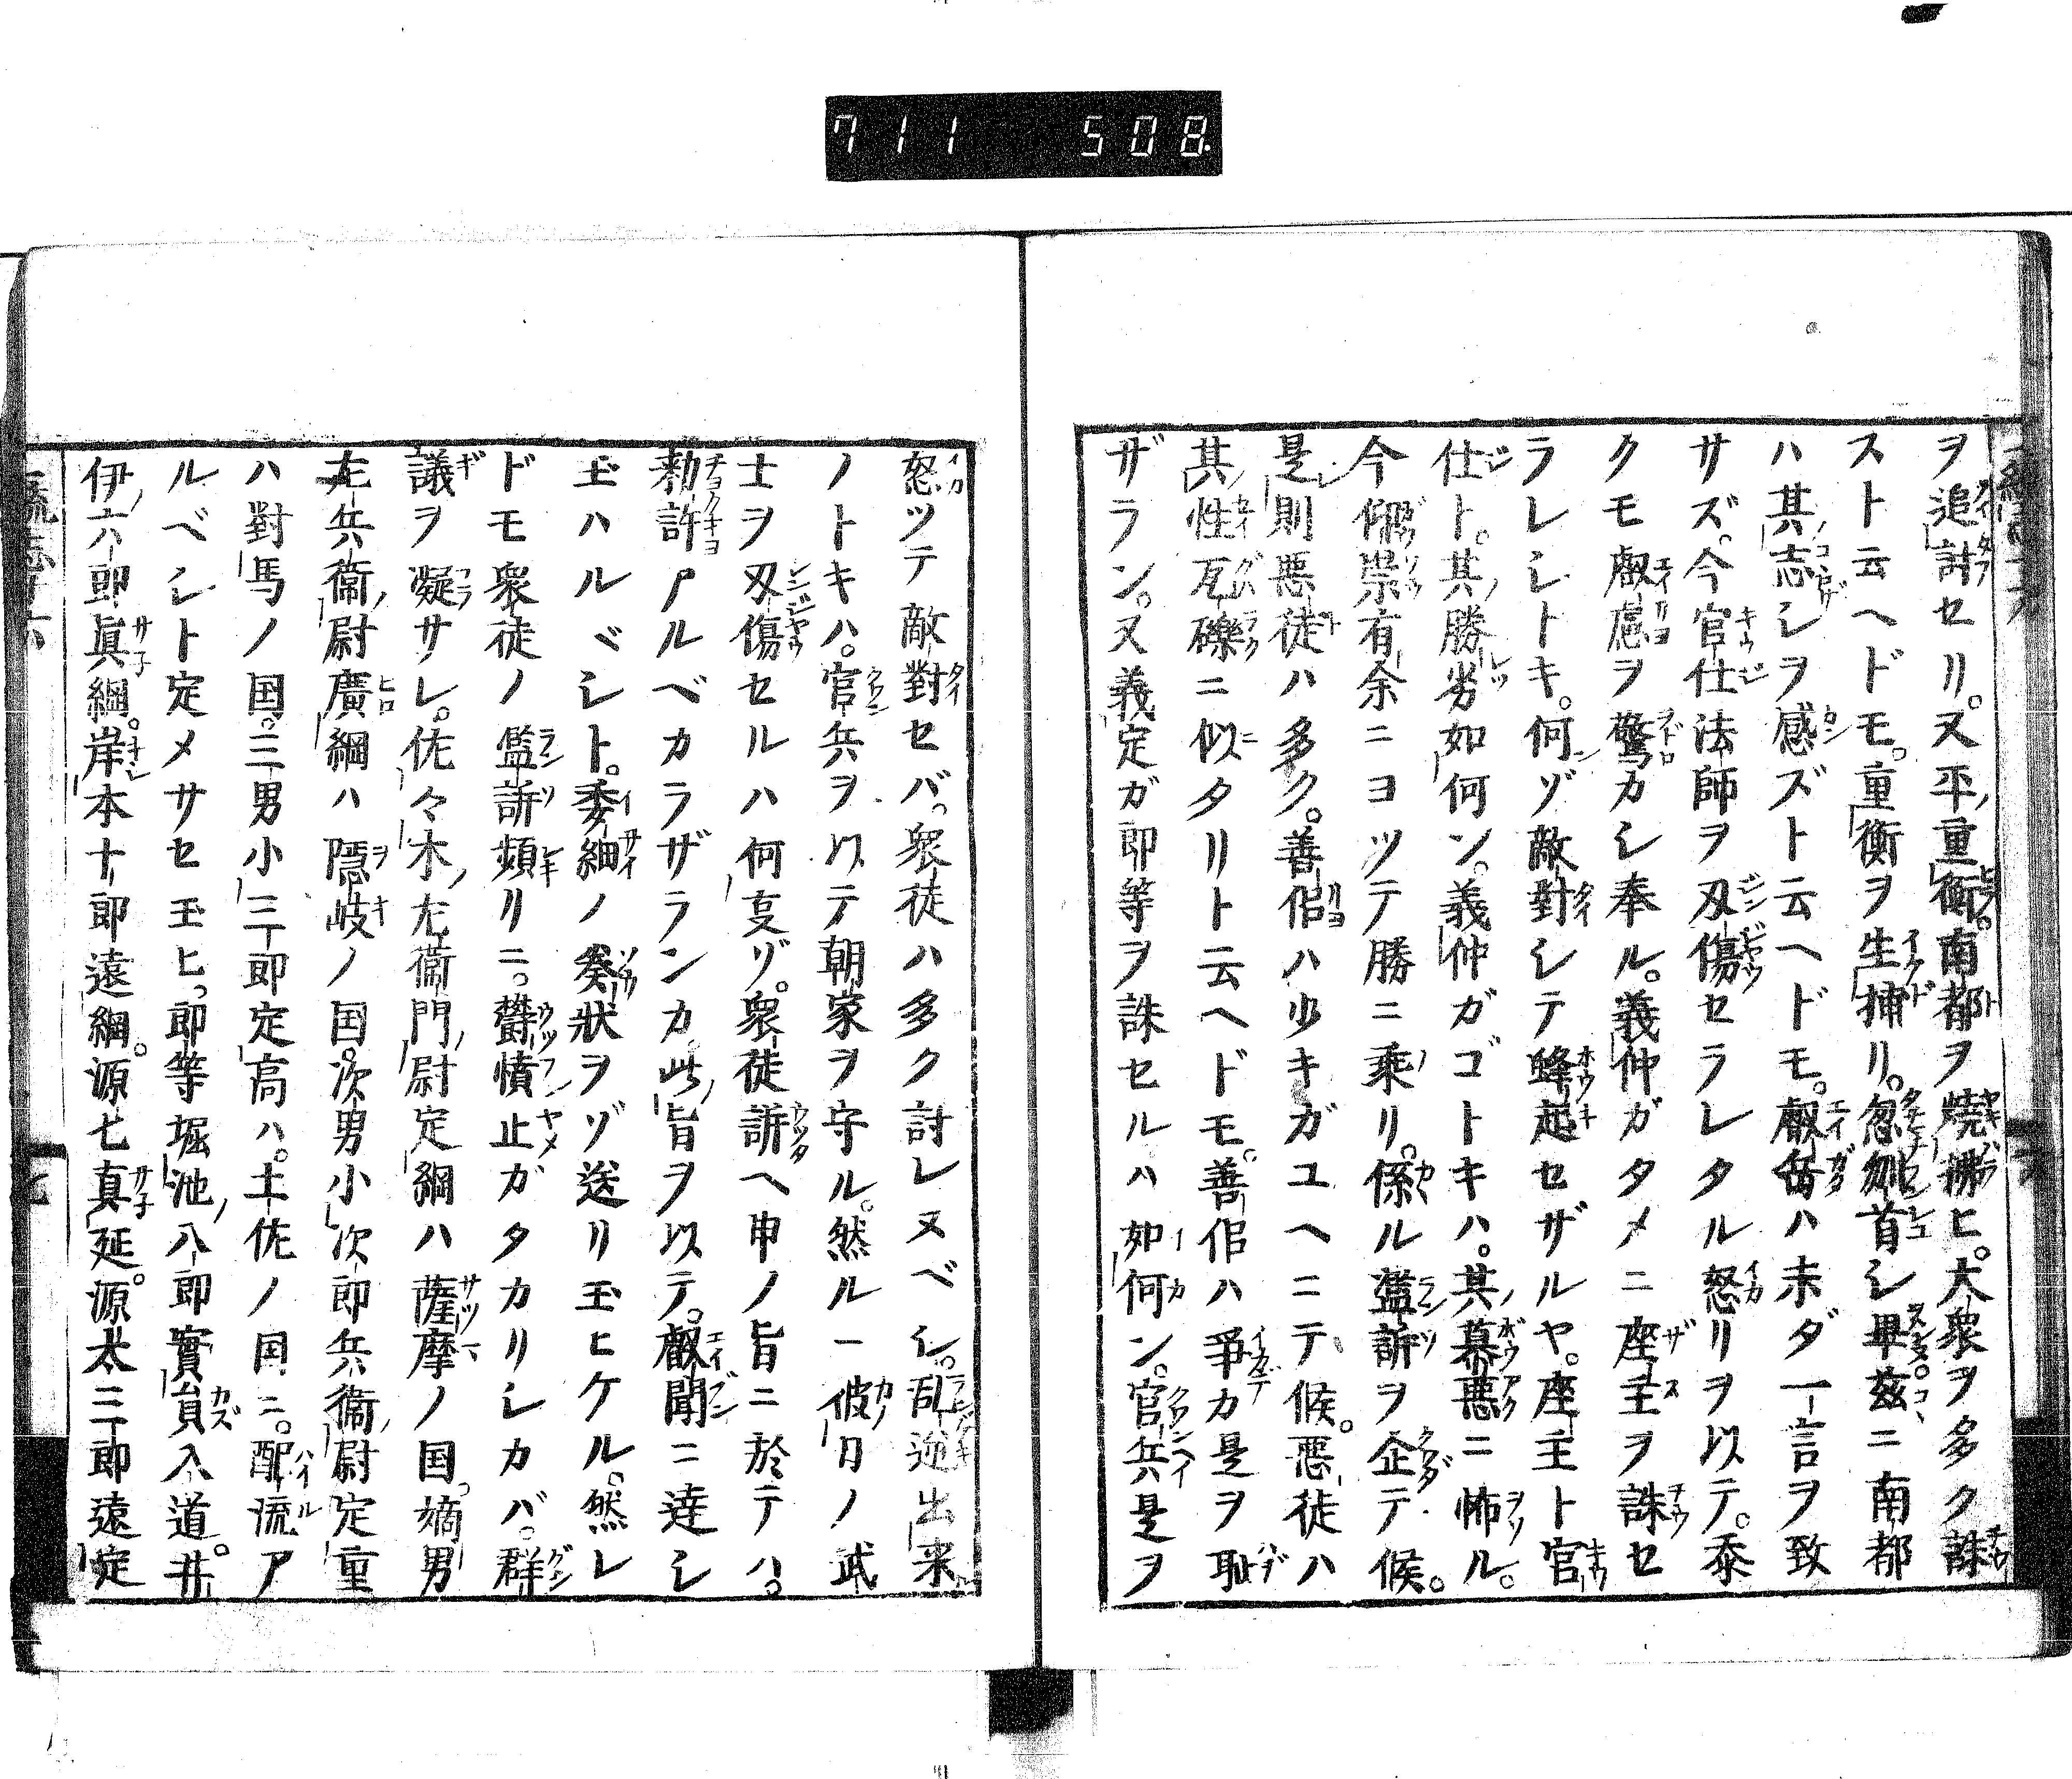 711 508.
ヲ追討セリ。又平ノ重衡。南都ヲ焼拂ヒ。大衆ヲ多ク誅
スト云ヘドモ。重衡ヲ生捕リ。忽刎首シ畢。茲ニ南都
ハ其志シヲ感ズト云ヘドモ。叡岳ハ未ダ一言ヲ致
サズ。今官仕法師ヲ刄傷セラレタル怒リヲ以テ。忝
クモ叡慮ヲ驚カシ奉ル。義仲ガタメニ座主ヲ誅セ
ラレシトキ。何ゾ敵對シテ蜂起セザルヤ。座主ト官
仕ト。其勝劣如何ン。義仲ガゴトキハ。其暴悪ニ怖ル。
今仰崇有余ニヨツテ勝ニ乗リ。係ル濫訴ヲ企テ候。
是則悪徒ハ多ク。善侶ハ少キガユヘニテ候。悪徒ハ
其性瓦礫ニ似タリト云ヘドモ。善侶ハ争カ是ヲ耻
ザラン。又義定ガ郎等ヲ誅セルハ如何ン。官兵是ヲ
怒ツテ敵對セバ。衆徒ハ多ク討レヌベシ。乱逆出来
ノトキハ。官兵ヲ以テ朝家ヲ守ル。然ル一彼日ノ武
士ヲ刄傷セルハ何叓ゾ。衆徒訴ヘ申ノ旨ニ於テハ。
勅許アルベカラザランカ。此旨ヲ以テ。叡聞ニ達シ
玉ハルベシト。委細ノ奏狀ヲゾ送リ玉ヒケル。然レ
ドモ衆徒ノ濫訴頻リニ。欝憤止ガタカリシカバ。群
議ヲ凝サレ。佐々木左衞門尉定綱ハ薩摩ノ国。嫡男
左兵衞尉廣綱ハ隠岐ノ国。次男小次郎兵衞尉定重
ハ對馬ノ国。三男小三郎定高ハ。土佐ノ国ニ。配流ア
ルベシト定メサセ玉ヒ。郎等堀池八郎實員入道。井
伊六郎眞綱。岸本十郎遠綱。源七真延。源太三郎遠定